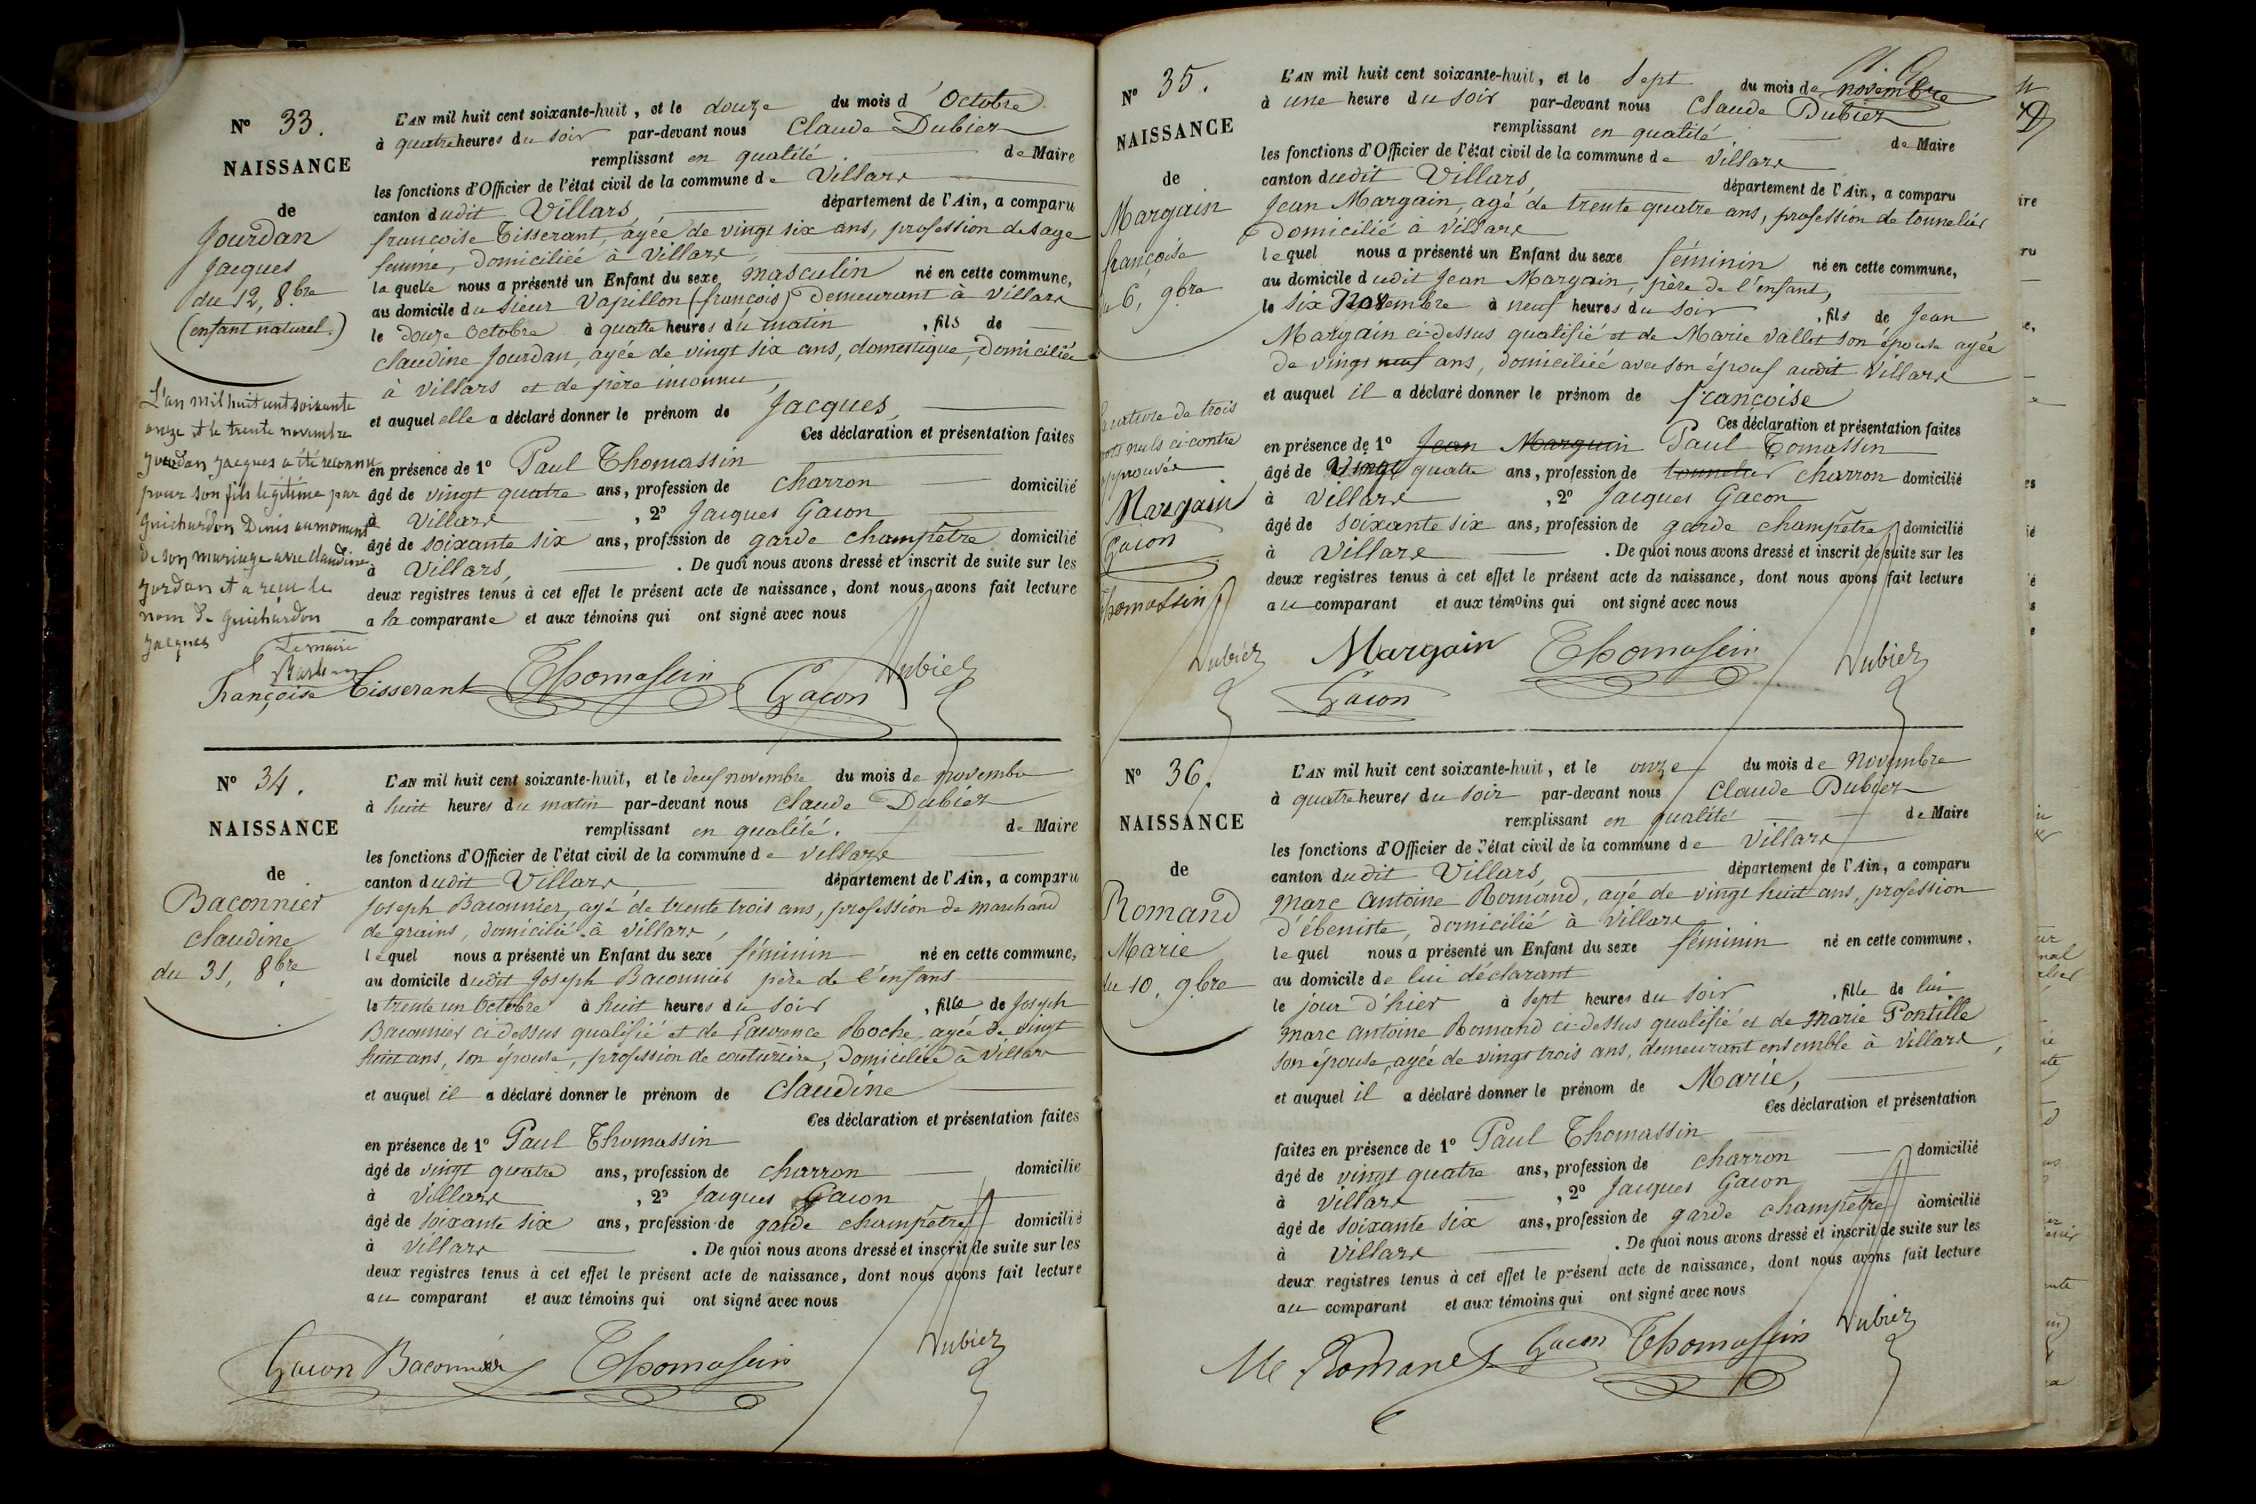 N° 33.
NAISSANCE
de
Jourdan
Jacques
du 12, 8.bre
(enfant naturel.)
L'an mil huit cent soixante
onze et le trente novembre
Jourdan Jacques a été reconnu
pour son fils légitime par
Guichardon Dénis au moment
de son mariage avec Claudine
Jordan et a reçu le
nom de Guichardon
Jacques
Le maire
L'AN mil huit cent soixante-huit, et le douze du mois d'Octobre
à quatre heures du soir par-devant nous Claude Dubiez
remplissant en qualité de Maire
les fonctions d'Officier de l'état civil de la commune de Villars
canton dudit Villars, département de l'Ain, a comparu
françoise Tisserant, agée de vingt six ans, profession de sage
femme, domiciliée à Villars,
laquelle nous a présenté un Enfant du sexe masculin né en cette commune,
au domicile du sieur Vapillon (françois) demeurant à Villars
le douze Octobre à quatre heures du matin, fils de
Claudine Jourdan, agée de vingt six ans, domestique, domiciliée
à Villars et de père inconnu,
et auquel elle a déclaré donner le prénom de Jacques,
Ces déclaration et présentation faites
en présence de 1° Paul Thomassin
âgé de vingt quatre ans, profession de charron domicilié
à Villars, 2° Jacques Gacon
âgé de soixante six ans, profession de garde champêtre domicilié
à Villars, . De quoi nous avons dressé et inscrit de suite sur les
deux registres tenus à cet effet le présent acte de naissance, dont nous avons fait lecture
a la comparante et aux témoins qui ont signé avec nous
Françoise Tisserant Thomassin Gacon Dubiez
N° 34.
NAISSANCE
de
Baconnier
Claudine
du 31, 8.bre
L'AN mil huit cent soixante-huit, et le deux novembre du mois de novembre
à huit heures du matin par-devant nous Claude Dubiez
remplissant en qualité. de Maire
les fonctions d'Officier de l'état civil de la commune de Villars
canton dudit Villars département de l'Ain, a comparu
Joseph Baconnier, agé de trente trois ans, profession de marchand
de grains, domicilié à Villars,
lequel nous a présenté un Enfant du sexe féminin né en cette commune,
au domicile dudit Joseph Baconnier père de l'enfant
le trente un Octobre à huit heures du soir, fille de Joseph
Baconnier ci-dessus qualifié et de Laurence Roche, agée de vingt
huit ans, son épouse, profession de couturière, domiciliée à Villars
et auquel il a déclaré donner le prénom de Claudine
Ces déclaration et présentation faites
en présence de 1° Paul Thomassin
âgé de vingt quatre ans, profession de charron domicilié
à Villars, 2° Jacques Gacon
âgé de soixante six ans, profession de garde champêtre domicilié
à Villars . De quoi nous avons dressé et inscrit de suite sur les
deux registres tenus à cet effet le présent acte de naissance, dont nous avons fait lecture
au comparant et aux témoins qui ont signé avec nous
Gacon Baconnier Thomassin Dubiez
N° 35.
NAISSANCE
de
Margain
françoise
du 6, 9bre
approuvée
Margain
Gacon
Thomassin
Dubiez
L'AN mil huit cent soixante-huit, et le Sept du mois de novembre
à une heure du soir par-devant nous Claude Dubiez
remplissant en qualité de Maire
les fonctions d'Officier de l'état civil de la commune de Villars
canton dudit Villars, département de l'Ain, a comparu
Jean Margain, agé de trente quatre ans, profession de tonnelier
domicilié à Villars
lequel nous a présenté un Enfant du sexe féminin né en cette commune,
au domicile dudit Jean Margain, père de l'enfant,
le six Novembre à neuf heures du soir, fils de Jean
Margain ci-dessus qualifié et de Marie Vallet son épouse agée
de vingt neuf ans, domiciliée avec son époux audit Villars
et auquel il a déclaré donner le prénom de françoise
Ces déclaration et présentation faites
en présence de 1° Jean Margain Paul Tomassin
âgé de vingt quatre ans, profession de tonnelier charron domicilié
à Villars, 2° Jacques Gacon
âgé de soixante six ans, profession de garde champêtre domicilié
à Villars . De quoi nous avons dressé et inscrit de suite sur les
deux registres tenus à cet effet le présent acte de naissance, dont nous avons fait lecture
au comparant et aux témoins qui ont signé avec nous
Margain Thomassin Dubiez
Gacon
N° 36.
NAISSANCE
de
Romand
Marie
du 10, 9bre
L'AN mil huit cent soixante-huit, et le onze du mois de Novembre
à quatre heures du soir par-devant nous Claude Dubiez
remplissant en qualité de Maire
les fonctions d'Officier de l'état civil de la commune de Villars
canton dudit Villars, département de l'Ain, a comparu
Marc Antoine Romand, agé de vingt huit ans, profession
d'ébeniste, domicilié à Villars
lequel nous a présenté un Enfant du sexe féminin né en cette commune,
au domicile de lui déclarant
le jour d'hier à sept heures du soir, fille de lui
Marc Antoine Romand ci-dessus qualifié et de Marie Pontille
son épouse, agée de vingt trois ans, demeurant ensemble à Villars,
et auquel il a déclaré donner le prénom de Marie,
Ces déclaration et présentation
faites en présence de 1° Paul Thomassin
âgé de vingt quatre ans, profession de charron domicilié
à Villars, 2° Jacques Gacon
âgé de soixante six ans, profession de garde champêtre domicilié
à Villars . De quoi nous avons dressé et inscrit de suite sur les
deux registres tenus à cet effet le présent acte de naissance, dont nous avons fait lecture
au comparant et aux témoins qui ont signé avec nous
Romand Gacon Thomassin Dubiez